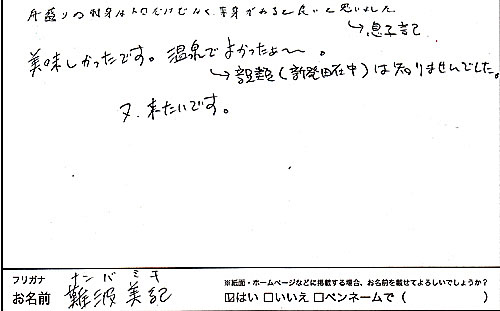 舟盛りの刺身は人口だけでなく、半身があると良いと思いました
→息子記
美味しかったです。温泉でよかったよ〜。
→(新発田在中)は知りませんでした。
又、来たいです。
フリガナ ナンバ ミキ
お名前 難波美記
※紙面・ホームページなどに掲載する場合、お名前を載せてよろしいでしょうか?
☑はい □いいえ □ペンネームで( )